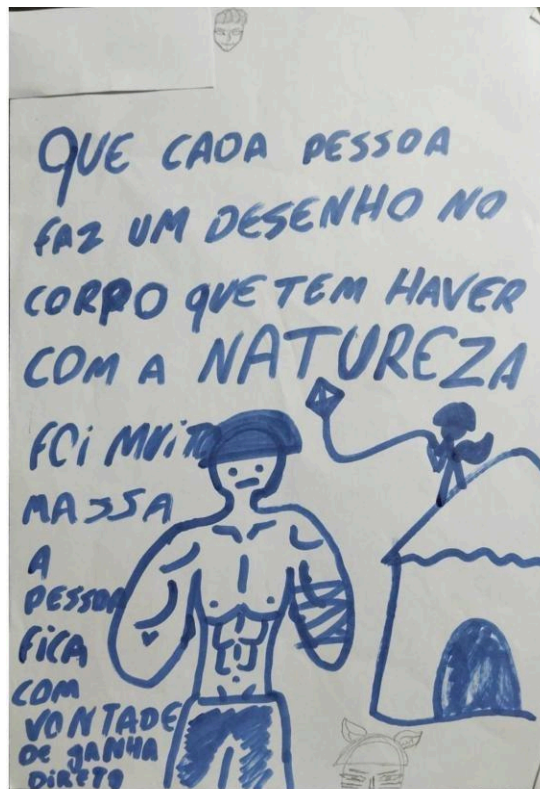 QUE CADA PESSOA
FAZ UM DESENHO NO
CORPO QUE TEM HAVER
COM A NATUREZA
FOI MUITO
MASSA
A
PESSOA
FICA
COM
VONTADE
DE GANHA
DIRETO